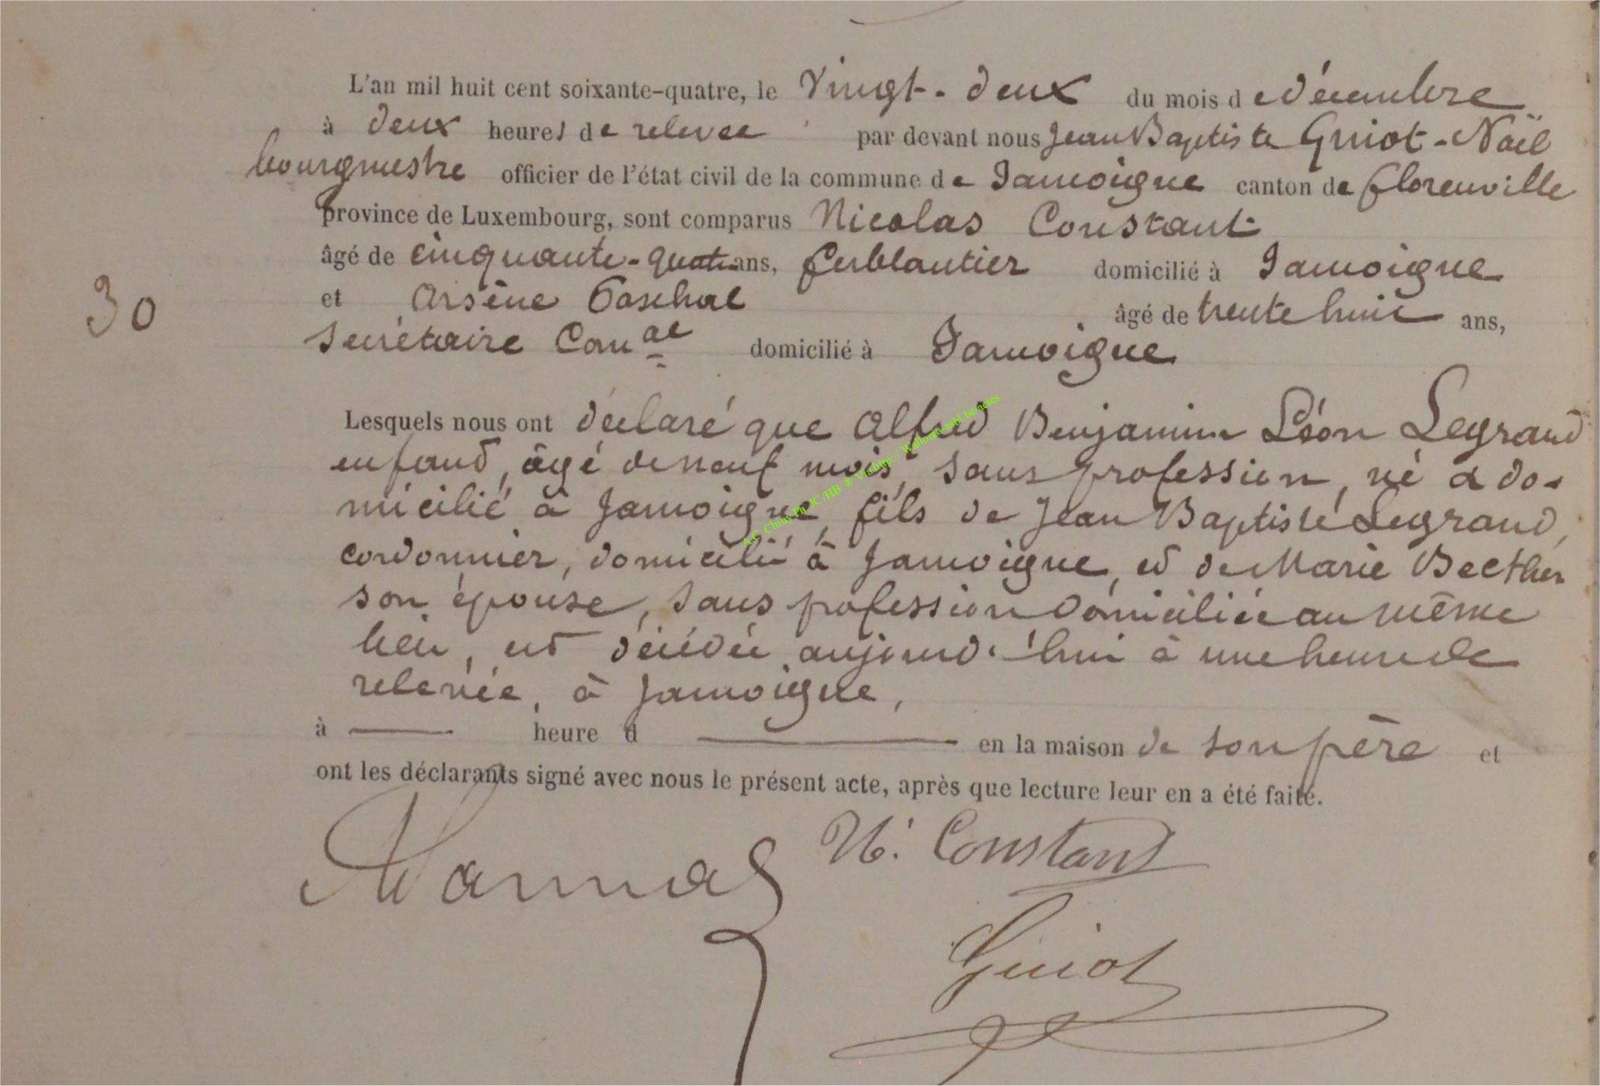 L'an mil huit cent soixante-quatre, le Vingt-deux du mois de décembre
à deux heures de relevée par devant nous Jean Baptiste Guiot-Naël
bourgmestre officier de l'état civil de la commune de Jamoigne canton de florenville
province de Luxembourg, sont comparus Nicolas Constant
âgé de cinquante-quatre ans, ferblantier domicilié à Jamoigne
30
et Arsène âgé de trente huit ans,
Secrétaire Com.al domicilié à Jamoigne
Lesquels nous ont déclaré que Alfred Benjamin Léon Legrand
enfand, âgé de neuf mois, sans profession, né & do-
micilié à Jamoigne, fils de Jean Baptiste Legrand,
cordonnier, domicilié à Jamoigne, et de Marie
son épouse, sans profession domiciliée au même
lieu, est décédée aujourd'hui à une heure de
relevée, à Jamoigne,
à heure d en la maison de son père et
ont les déclarants signé avec nous le présent acte, après que lecture leur en a été faite.
N. Constant
Guiot